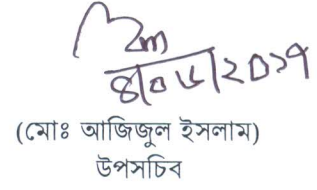 ৪/০৬/২০১৭
(মোঃ আজিজুল ইসলাম)
উপসচিব